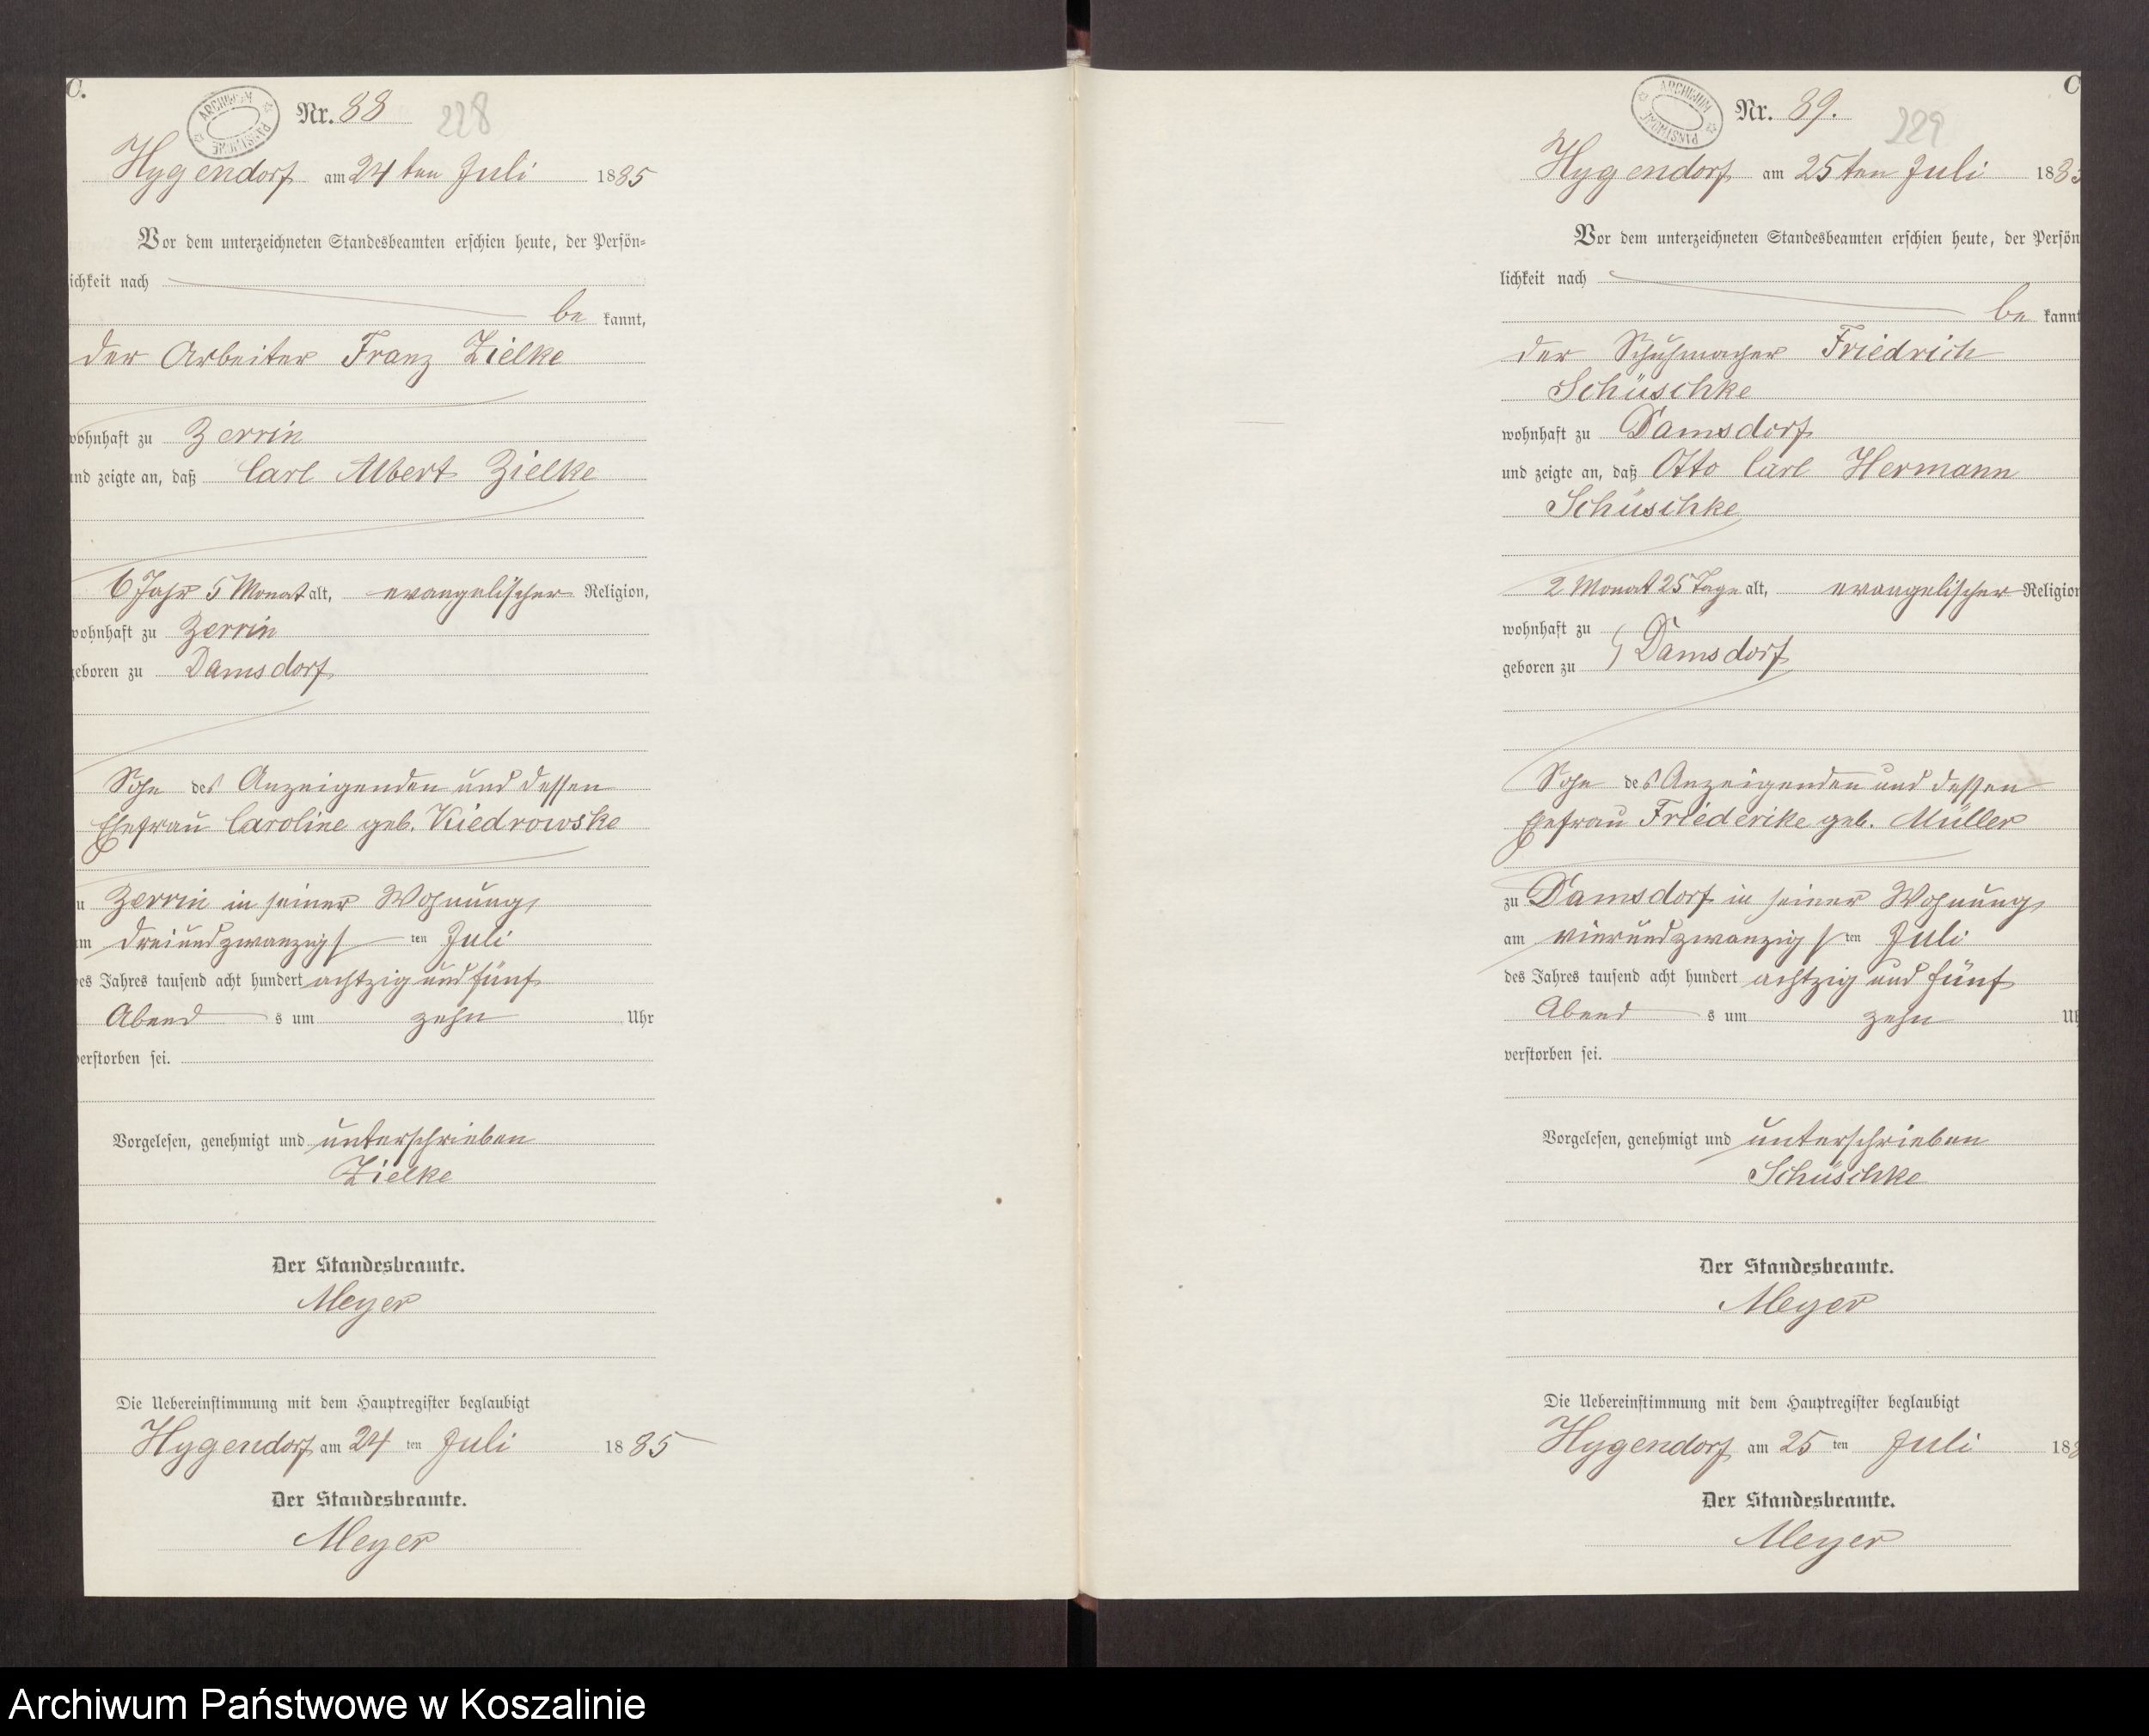 C.
ARCHIWUM PAŃSTWOWE
Nr. 88 228
Hygendorf am 24ten Juli 1885
Vor dem unterzeichneten Standesbeamten erschien heute, der Persön-
lichkeit nach
be kannt,
der Arbeiter Franz Zielke
wohnhaft zu Zerrin
und zeigte an, daß Carl Albert Zielke
6 Jahr 5 Monat alt, evangelischer Religion,
wohnhaft zu Zerrin
geboren zu Damsdorf
Sohn des Anzeigenden und dessen
Ehefrau Caroline geb. Kiedrowske
zu Zerrin in seiner Wohnung
am dreiundzwanzigs ten Juli
des Jahres tausend acht hundert achtzig und fünf
Abend s um zehn Uhr
verstorben sei.
Vorgelesen, genehmigt und unterschrieben
Zielke
Der Standesbeamte.
Meyer
Die Uebereinstimmung mit dem Hauptregister beglaubigt
Hygendorf am 24 ten Juli 1885
Der Standesbeamte.
Meyer
C
ARCHIWUM PAŃSTWOWE
Nr. 89. 229
Hygendorf am 25ten Juli 1885
Vor dem unterzeichneten Standesbeamten erschien heute, der Persön
lichkeit nach
be kannt
der Schuhmacher Friedrich
Schüschke
wohnhaft zu Damsdorf
und zeigte an, daß Otto Carl Hermann
Schüschke
2 Monat 25 Tage alt, evangelischer Religion
wohnhaft zu
geboren zu } Damsdorf
Sohn des Anzeigenden und dessen
Ehefrau Friederike geb. Müller
zu Damsdorf in seiner Wohnung
am vierundzwanzigs ten Juli
des Jahres tausend acht hundert achtzig und fünf
Abend s um zehn Uh
verstorben sei.
Vorgelesen, genehmigt und unterschrieben
Schüschke
Der Standesbeamte.
Meyer
Die Uebereinstimmung mit dem Hauptregister beglaubigt
Hygendorf am 25 ten Juli 188
Der Standesbeamte.
Meyer
Archiwum Państwowe w Koszalinie